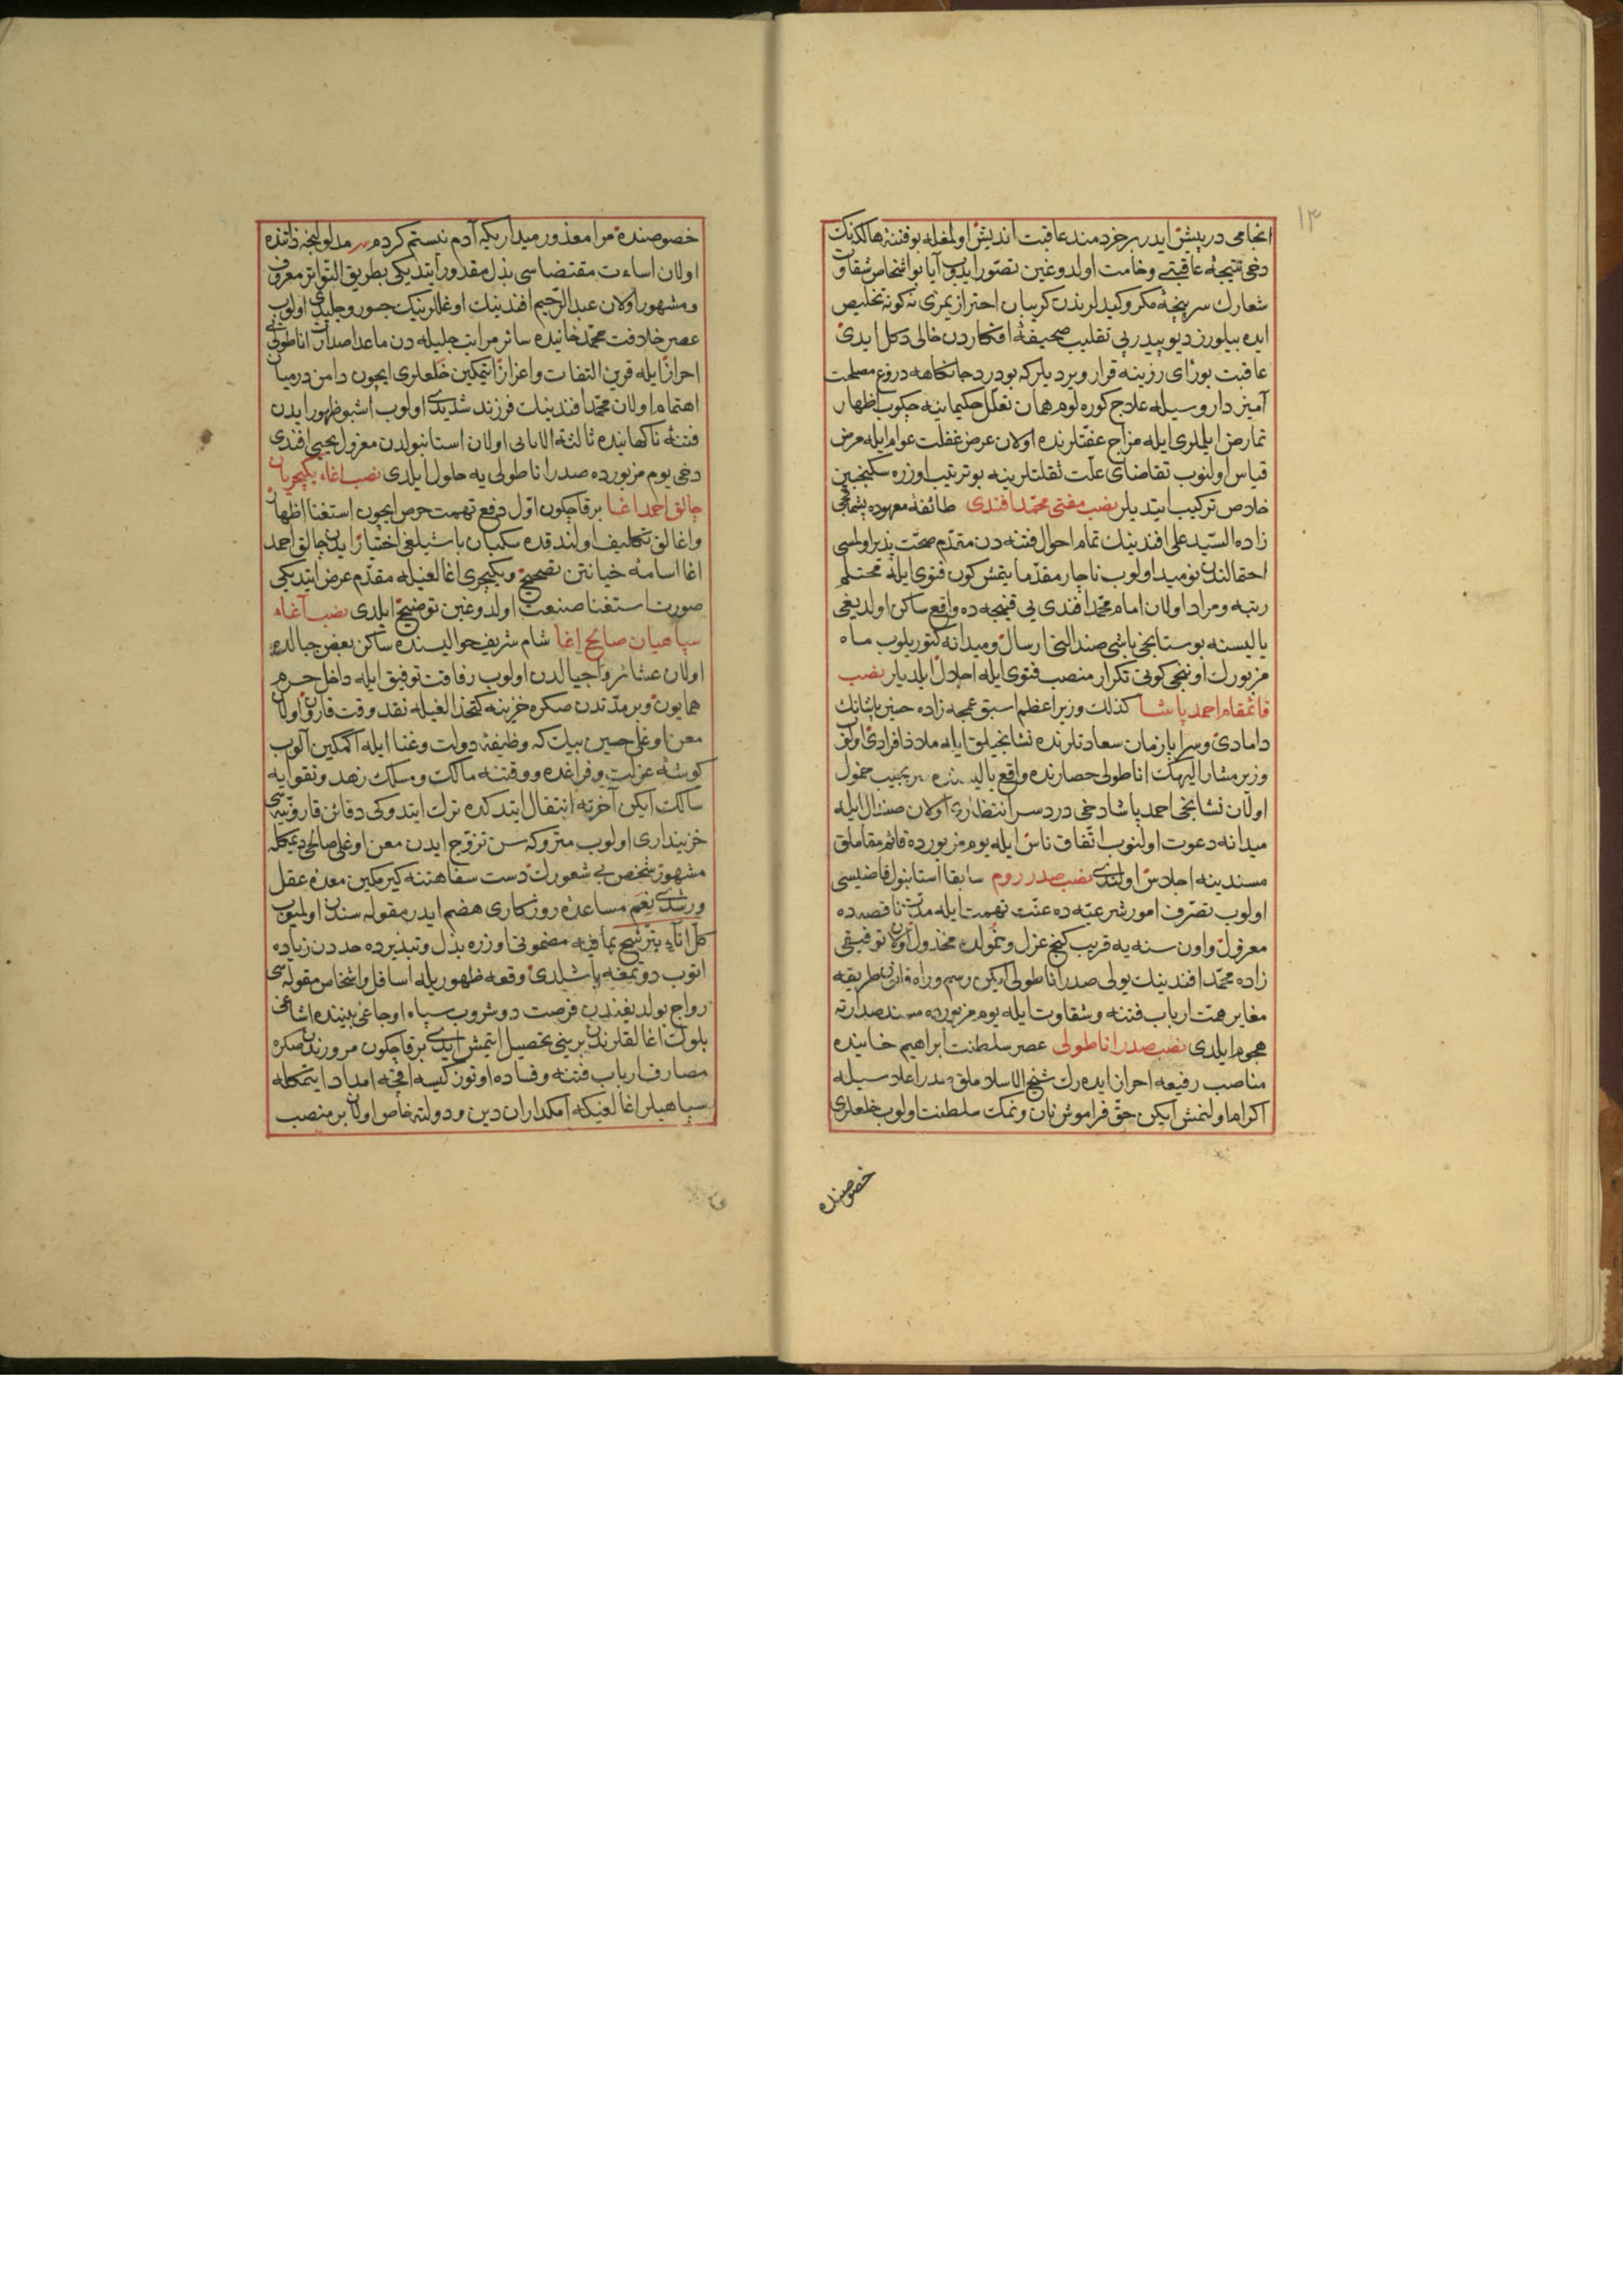 ١٣
انجامی درپیش ایدر بر خردمند عاقبت اندیش اولمغله بو فتنۀ هالکه‌نك
دخی نتیجۀ عاقبتی وخامت اولدوغین تصوّر ایدوب آیا بو اشخاص شقاوت
شعارك سرپنجۀ مکر و کیدلرندن کریبان احترازیمزی نه کونه تخلیص
ایده بیلورز دیو پیدرپی تقلیب صحیفۀ افکاردن خالی دکل ایدی
عاقبت بو رای رزینه قرار ویردیلر که بو درد جانکاهه دروغ مصلحت
آمیز دارو سیله علاج کوره‌لوم همان تعلّل حکیمانه چکوب اظهار
تمارض ایلملری ایله مزاج عفّتلرنده اولان عرض غفلت عوام ایله مرض
قیاس اولنوب تقاضای علّت ثقلتلرینه بو ترتیب اوزره سکنجبین
خلاص ترکیب ایتدیلر نصب مفتی محمّد افندی طائفۀ معهوده پشماقجی
زاده السّید علی افندینك تمام احوال فتنه‌دن مقدّم صحّت پذیر اولمسی
احتمالندن نومید اولوب ناچار مقدّما یتمش کون فتوی ایله محتلم
رتبه و مراد اولان امام محمّد افندی یی قنیجه‌ده واقع ساکن اولدیغی
یالیسنه بوستانجی باشی صندالنی ارسال و میدانه کتوریلوب ماه
مزبورك اوننجی کونی تکرار منصب فتوی ایله اجلال ایلدیلر نصب
قائمقام احمد پاشا کذلك وزیر اعظم اسبق عمجه زاده حسین پاشانك
دامادی و سرایا زمان سعادتلرنده نشانجیلق ایله ملاذ افرادی اولوب
وزیر مشار الیهك اناطولی حصارنده واقع یالیسنده سر بجیب خمول
اولان نشانجی احمد پاشا دخی دردسر انتظاری اولان صندال ایله
میدانه دعوت اولنوب اتّفاق ناس ایله یوم مزبورده قائم مقاملق
مسندینه اجلاس اولندی نصب صدر روم سابقا استانبول قاضیسی
اولوب تصرّف امور شرعیّه‌ده عنّت تهمت ایله مدّت ناقصه‌ده
معزول و اون سنه‌یه قریب کنج عزل و خمولده مخذول اولان توفیقی
زاده محمّد افندینك یولی صدر اناطولی ایکن رسم و راه قانون طریقه
مغایر همّت ارباب فتنه و شقاوت ایله یوم مزبورده مسند صدارته
هجوم ایلدی نصب صدر اناطولی عصر سلطنت ابراهیم خانیده
مناصب رفیعه احراز ایده‌رك شیخ الاسلاملق صدر اعلاسیله
اکرام اولنمش ایکن حقّ فراموش نان و نمك سلطنت اولوب خلعلری
خصوصنده
خصوصنده مرا معذور میدار یکه آدم نیستم کردم مدلولنجه ذاتنده
اولان اساءت مقتضاسی بذل مقدور ایتدیکی بطریق التّواتر معروف
و مشهور اولان عبد الرّحیم افندینك اوغللرینك جسور و جلیدی اولوب
عصر خلافت محمّد خانیده سائر مراتب جلیله‌دن ماعدا صدارت اناطولی
احراز ایله قرین التفات و اعزاز ایتمکین خلعلری ایچون دامن درمیان
اهتمام اولان محمّد افندینك فرزند شدیدی اولوب اشبو ظهور ایدن
فتنۀ ناکهانیده ثالثة الاثافی اولان استانبولدن معزول یحیی افندی
دخی یوم مزبورده صدر اناطولی‌یه حلول ایلدی نصب اغاء یکیچریان
چالق احمد اغا بر قاچ کون اوّل دفع تهمت حرص ایچون استغنا اظهار
و اغالق تکلیف اولندقده سکبان باشیلغی اختیار ایدن چالق احمد
اغا اسامه خیانتن تصحیح و یکیچری اغالغیله مقدّم عرض ایتدیکی
صورت استغنا صنعت اولدوغین توضیح ایلدی نصب آغاء
سپاهیان صالح اغا شام شریف حوالیسنده ساکن بعض جبالده
اولان عشائر و اجیالدن اولوب رفاقت توفیق ایله داخل حرم
همایون و بر مدّتدن صکره خزینه کتخدالغیله نقد وقت قارون اولان
معن اوغلی حسین بیك که وظیفۀ دولت و غنا ایله اکمکین آلوب
کوشۀ عزلت و فراغده و وقتنه مالك و مسلك زهد و تقوایه
سالك ایکن آخرته انتقال ایتدکده ترك ایتدوکی دفائن قارونیّه‌سی
خزینداری اولوب متروکه‌سن تزوّج ایدن معن اوغلی صالحی دیمکله
مشهور شخص بی شعورك دست سفاهتنه کیرمکین معدۀ عقل
و رشدی نعم مساعدۀ روزکاری هضم ایدر مقوله‌سندن اولمیوب
کلّ اناء یترشّح بما فیه مضمونی اوزره بذل و تبذیرده حددن زیاده
اتوب دوتمغه باشلدی وقعه ظهوریله اسافل و اشخاص مقوله‌سی
رواج بولدیغندن فرصت دوشروب سپاه اوجاغی بیننده اشاغی
بلوك اغالقلرندن برینی تحصیل ایتمش ایدی بر قاچ کون مرورندن صکره
مصارف ارباب فتنه و فساده اوتوز کیسه اقچه امداد ایتمکله
سپاهیلر اغالغنه که امکداران دین و دولته خاص اولان بر منصب